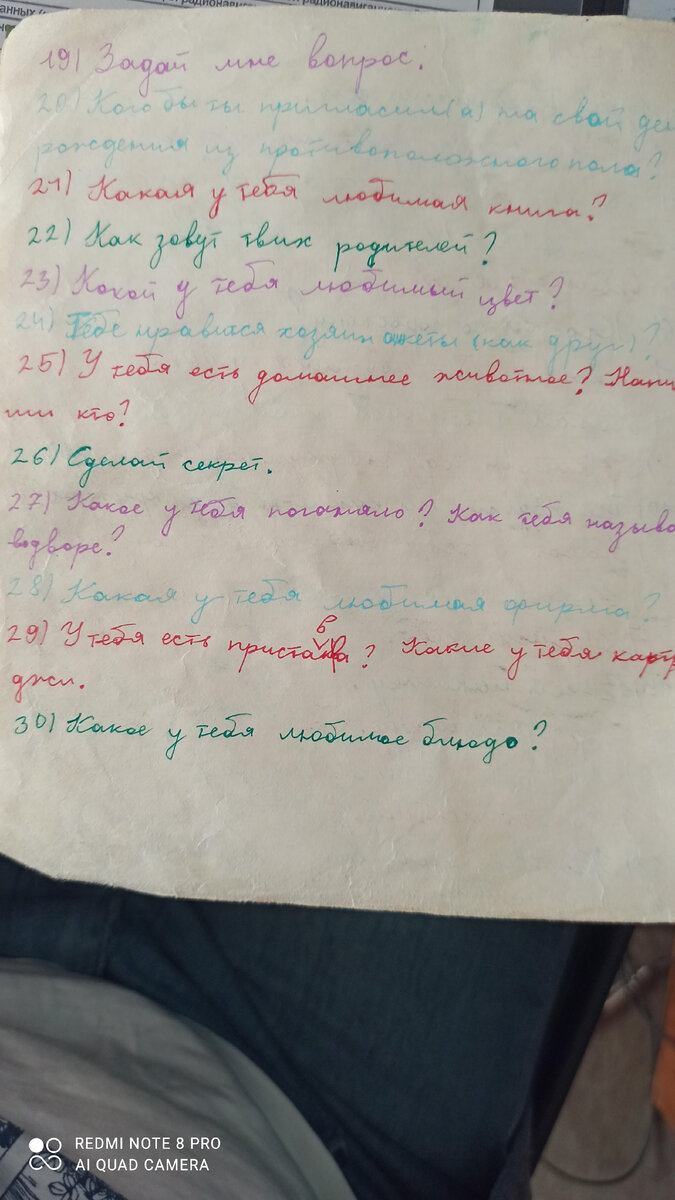 анных (
19) Задай мне вопрос.
20) Кого бы ты пригласил(а) на свой ден
рождения из противоположного пола?
21) Какая у тебя любимая книга?
22) Как зовут твих родителей?
23) Какой у тебя любимый цвет?
24) Тебе нравится хозяин анкеты (как друг)?
25) У тебя есть домашнее животное? Напи
ши кто?
26) Сделай секрет.
27) Какое у тебя погоняло? Как тебя называ
водворе?
28) Какая у тебя любимая фирма?
29) У тебя есть приставка? Какие у тебя картр
джи.
30) Какое у тебя любимое блюдо?
REDMI NOTE 8 PRO
AI QUAD CAMERA